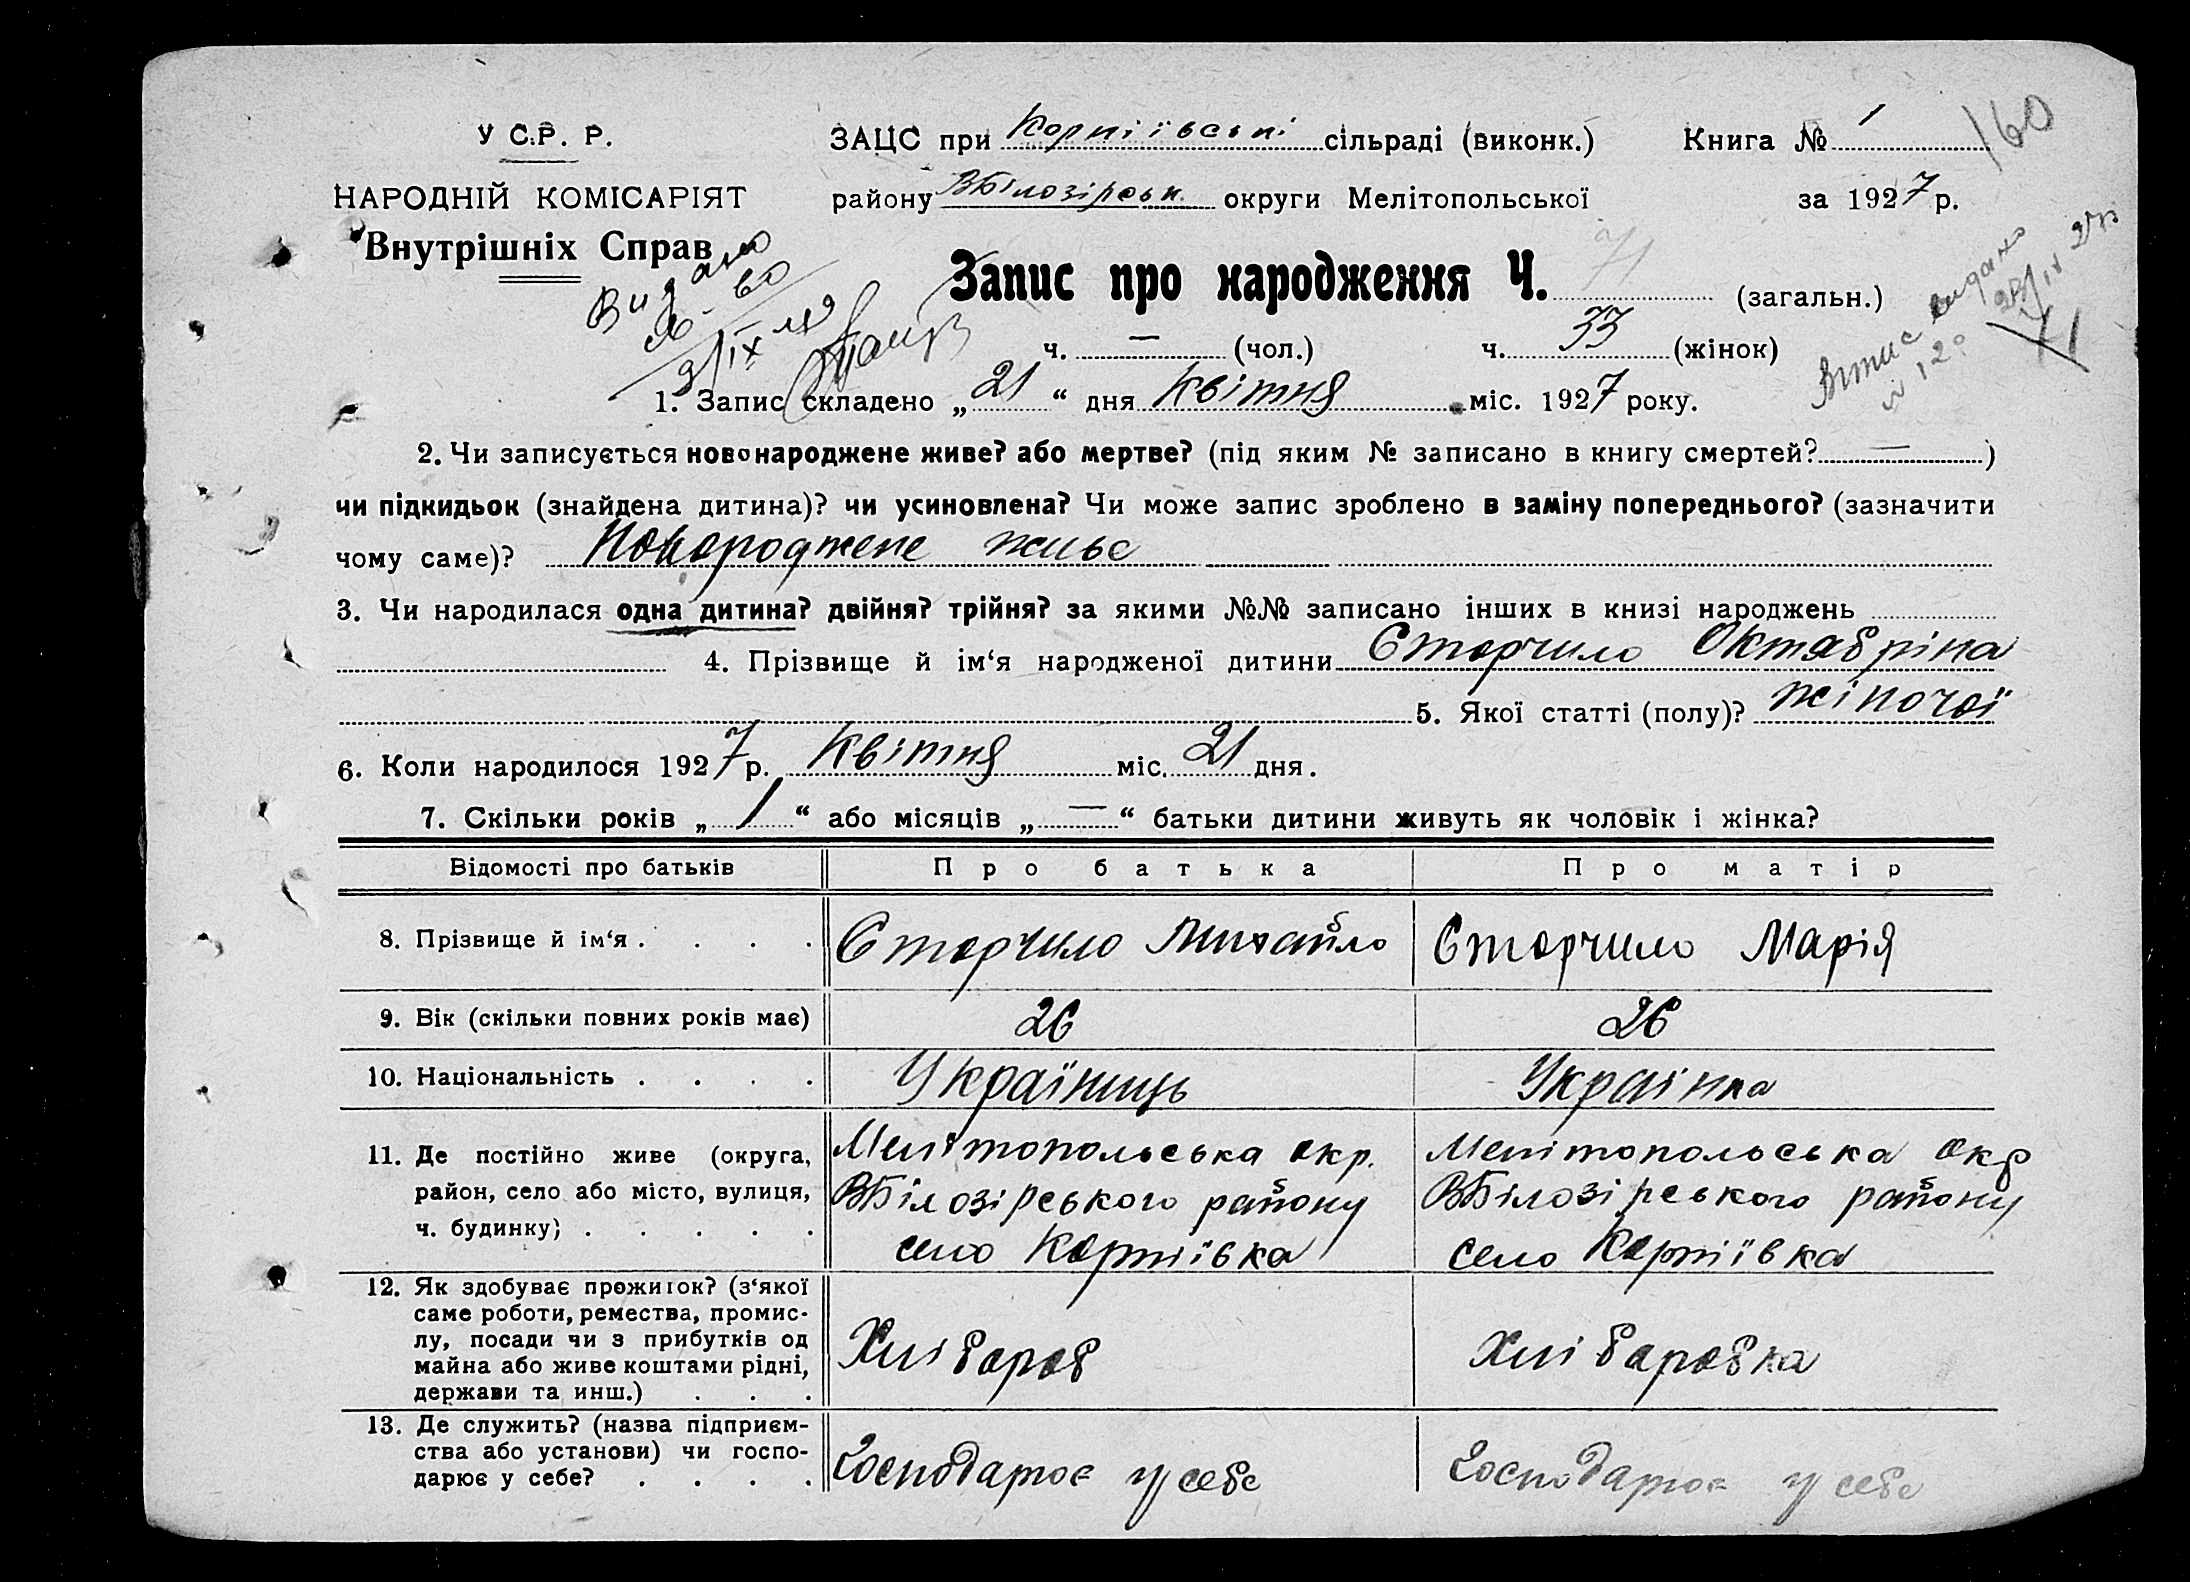 У С.Р. Р.
НАРОДНІЙ КОМІСАРІЯТ
Внутрішніх Справ
ЗАЦС при Корніївські сільраді (виконк.) Книга № 1
160
району ВБілозірськ. округи Мелітопольської за 1927 р.
Видано
Запис про народження Ч. 71 (загальн.)
Витяг видано
71
ч. — (чол.) ч. 33 (жінок)
1. Запис складено „21“ дня Квітня міс. 1927 року.
2. Чи записується новонароджене живе? або мертве? (під яким № записано в книгу смертей? —)
чи підкидьок (знайдена дитина)? чи усиновлена? Чи може запис зроблено в заміну попереднього? (зазначити
чому саме)? Новороджене живе
3. Чи народилася одна дитина? двійня? трійня? за якими №№ записано інших в книзі народжень
4. Прізвище й ім‘я народженої дитини Сторчило Октябріна
5. Якої статті (полу)? жіночої
6. Коли народилося 1927 р. Квітня міс. 21 дня.
7. Скільки років „1“ або місяців „—“ батьки дитини живуть як чоловік і жінка?
Відомості про батьків Про батька Про матір
8. Прізвище й ім‘я . . . . Сторчило Михайло Сторчило Марія
9. Вік (скільки повних років має) 26 26
10. Національність . . . . Украïниць Украінка
11. Де постійно живе (округа, район, село або місто, вулиця, ч. будинку) . . . . .
Мелітопольська окр.
ВБілозірського району
село Корніївка
Мелітопольська окр
ВБілозірського району
село Корніївка
12. Як здобуває прожиток? (з‘якої
саме роботи, ремества, промис-
лу, посади чи з прибутків од
майна або живе коштами рідні,
держави та инш.) . . .
Хлібороб
Хлібаробка
13. Де служить? (назва підприєм-
ства або установи) чи госпо-
дарює у себе? . . . .
Господарює у себе
Господарює у себе